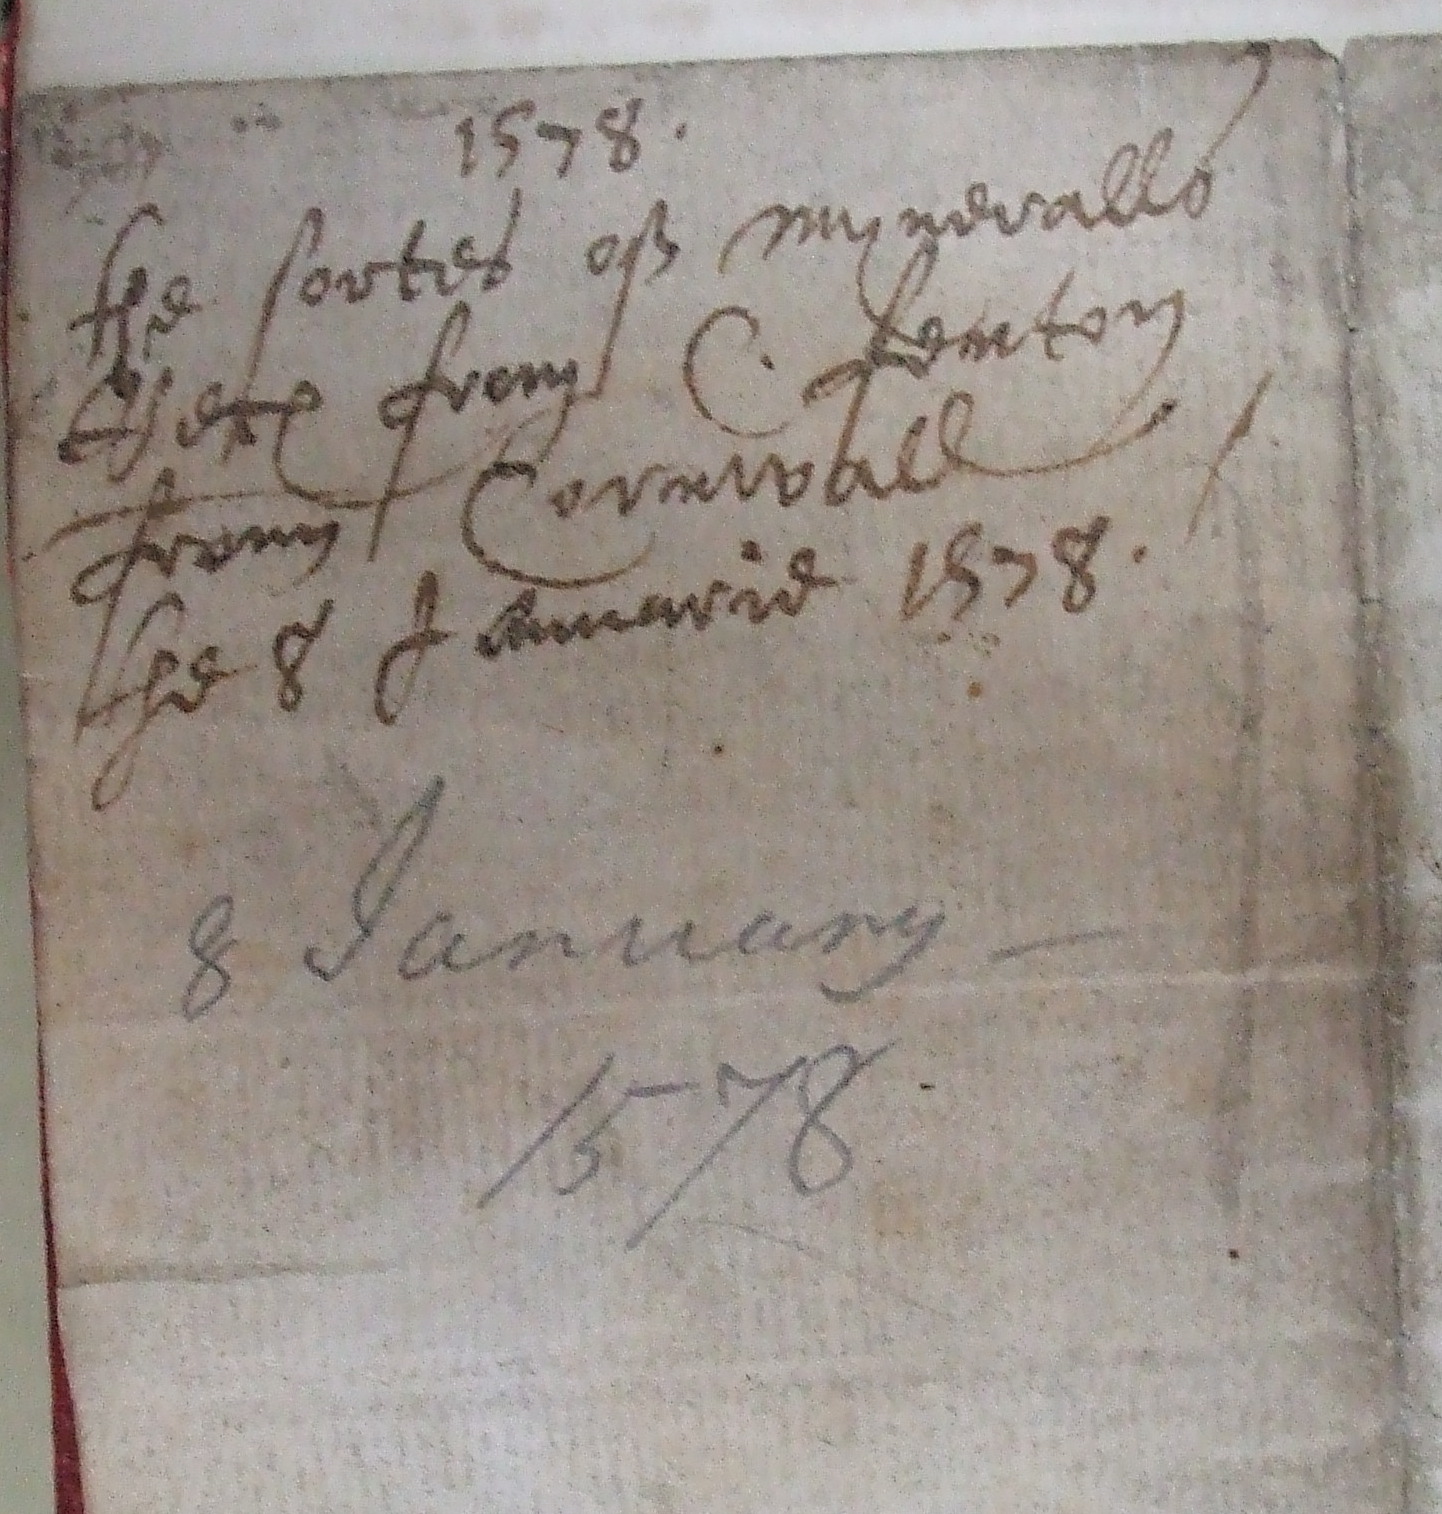 1578.
the sortes off myneralls
from C. ffenton
from Cornwall
the 8 Januarie 1578.
8 January —
1578